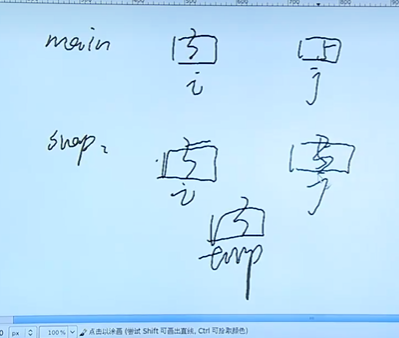 main 3 5
i j
swap:
i j
3
tmp
px 100% 点击以涂画 (尝试 Shift 可画出直线, Ctrl 可拾取颜色)